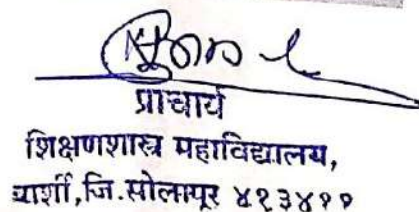 प्राचार्य
शिक्षणशास्त्र महाविद्यालय,
बार्शी, जि.सोलापूर ४१३४११